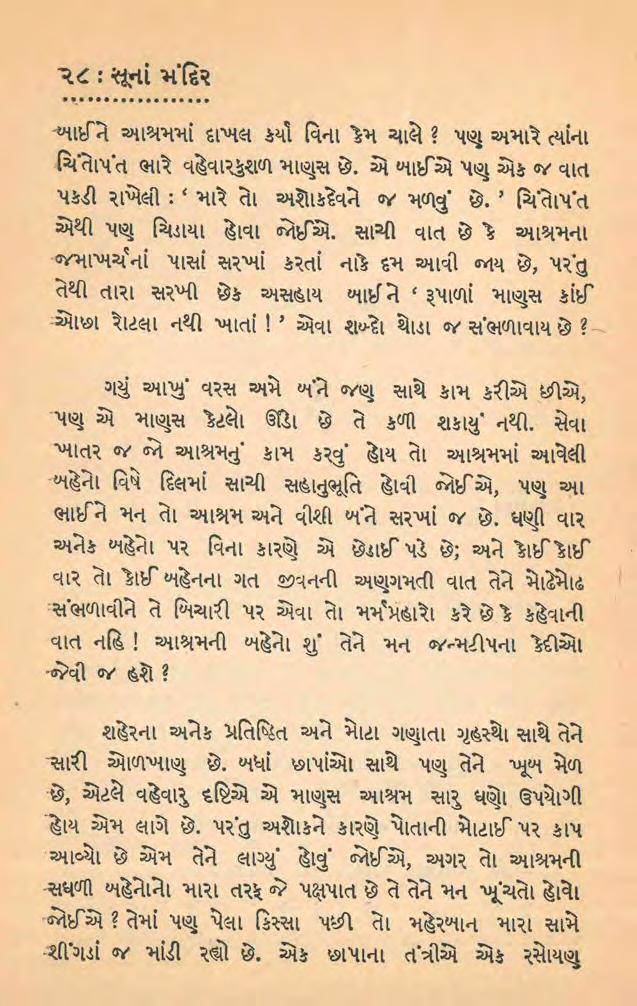 ૨૮ : સૂનાં મંદિર
બાઈને આશ્રમમાં દાખલ કર્યા વિના કેમ ચાલે ? પણ અમારે ત્યાંના
ચિંતોપંત ભારે વહેવારકુશળ માણસ છે. એ બાઈએ પણ એક જ વાત
પકડી રાખેલી : ‘ મારે તો અશોકદેવને જ મળવું છે. ’ ચિંતોપંત
એથી પણ ચિડાયા હોવા જોઈએ. સાચી વાત છે કે આશ્રમના
જમાખર્ચનાં પાસાં સરખાં કરતાં નાકે દમ આવી જાય છે, પરંતુ
તેથી તારા સરખી છેક અસહાય બાઈને ‘ રૂપાળાં માણસ કાંઈ
ઓછા રોટલા નથી ખાતાં ! ’ એવા શબ્દો થોડા જ સંભળાવાય છે ?
ગયું આખું વરસ અમે બંને જણ સાથે કામ કરીએ છીએ,
પણ એ માણસ કેટલો ઊંડો છે તે કળી શકાયું નથી. સેવા
ખાતર જ જો આશ્રમનું કામ કરવું હોય તો આશ્રમમાં આવેલી
બહેનો વિષે દિલમાં સાચી સહાનુભૂતિ હોવી જોઈએ, પણ આ
ભાઈને મન તો આશ્રમ અને વીશી બંને સરખાં જ છે. ઘણી વાર
અનેક બહેનો પર વિના કારણે એ છેડાઈ પડે છે; અને કોઈ કોઈ
વાર તો કોઈ બહેનના ગત જીવનની અણગમતી વાત તેને મોઢેમોઢ
સંભળાવીને તે બિચારી પર એવા તો મર્મપ્રહારો કરે છે કે કહેવાની
વાત નહિ ! આશ્રમની બહેનો શું તેને મન જન્મટીપના કેદીઓ
જેવી જ હશે ?
શહેરના અનેક પ્રતિષ્ઠિત અને મોટા ગણાતા ગૃહસ્થો સાથે તેને
સારી ઓળખાણ છે. બધાં છાપાંઓ સાથે પણ તેને ખૂબ મેળ
છે, એટલે વહેવારુ દૃષ્ટિએ એ માણસ આશ્રમ સારુ ઘણો ઉપયોગી
હોય એમ લાગે છે. પરંતુ અશોકને કારણે પોતાની મોટાઈ પર કાપ
આવ્યો છે એમ તેને લાગ્યું હોવું જોઈએ, અગર તો આશ્રમની
સઘળી બહેનોનો મારા તરફ જે પક્ષપાત છે તે તેને મન ખૂંચતો હોવો
જોઈએ ? તેમાં પણ પેલા કિસ્સા પછી તો મહેરબાન મારા સામે
શીંગડાં જ માંડી રહ્યો છે. એક છાપાના તંત્રીએ એક રસોયણ